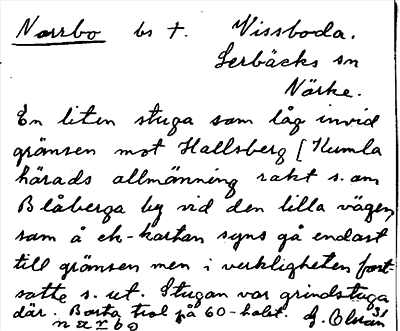 Norrbo bs t. Wissboda.
Lerbäcks sn
Närke.
En liten stuga som låg invid
gränsen mot Hallsberg [Kumla
härads allmänning rakt s. om
Blåberga by vid den lilla vägen,
som å ek-kartan syns gå endast
till gränsen men i verkligheten fort-
satte s. ut. Stugan var grindstuga
där. Borta trol på 60-talet. G. Olsson
31
narbo